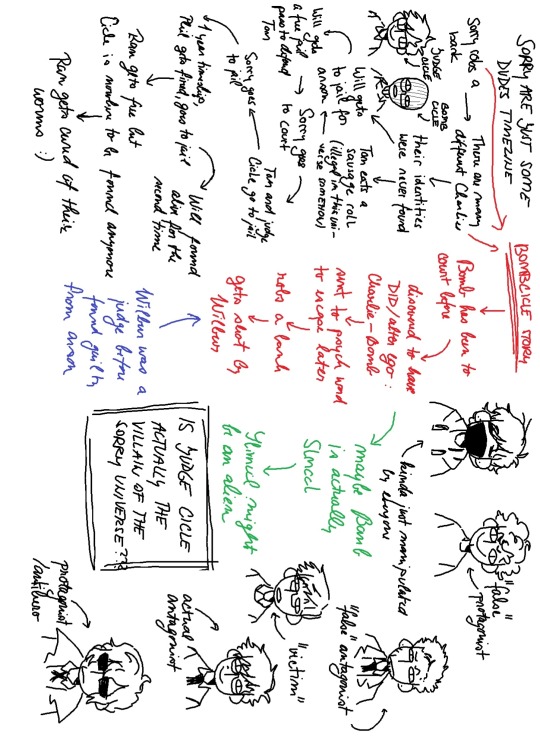 SORRY ARE JUST SOME
DUDES TIMELINE
Sorry robs a
bank
There are many
different Charlies
JUDGE
CICLE
BOMB
CICLE
their identities
were never found
Tom eats a
sausage roll
(illegal in this uni-
verse somehow)
Will goes
to jail for
arson
Will gets
a free jail
pass to defend
Tom
Sorry goes
to court
Tom and judge
Cicle go to jail
Sorry goes
to jail
1 year timeskip,
Phil gets fined, goes to jail
Will found
alive for the
second time
Ran gets free but
Cicle is nowhere to be found anymore
Ran gets cured of their
worms :)
BOMBCICLE STORY
Bomb has been to
court before
discovered to have
DID/alter ego:
Charlie-Bomb
sent to psych ward
to escape later
robs a bank
gets shot by
Wilbur
Wilbur was a
judge before
found guilty
from arson
maybe Bomb
is actually
Slimed
Slimecl might
be an alien
IS JUDGE CICLE
ACTUALLY THE
VILLAIN OF THE
SORRY UNIVERSE???
kinda just manipulated
by everyone
"false"
protagonist
"false" antagonist
"victim"
actual
antagonist
protagonist
/antihero